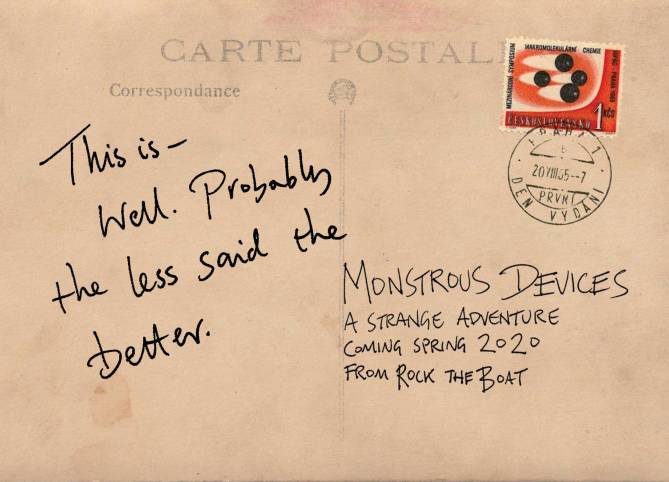 CARTE POSTALE
Correspondance
MEZINÁRODNÍ SYMPOSIUM
MAKROMOLEKULÁRNÍ CHEMIE
PRAHA 1965
ČESKOSLOVENSKO
1 Kčs
PRAHA 1
20.VIII.65--7
PRVNÍ
DEN VYDÁNÍ
This is –
Well. Probably
the less said the
better.
MONSTROUS DEVICES
A STRANGE ADVENTURE
COMING SPRING 2020
FROM ROCK THE BOAT